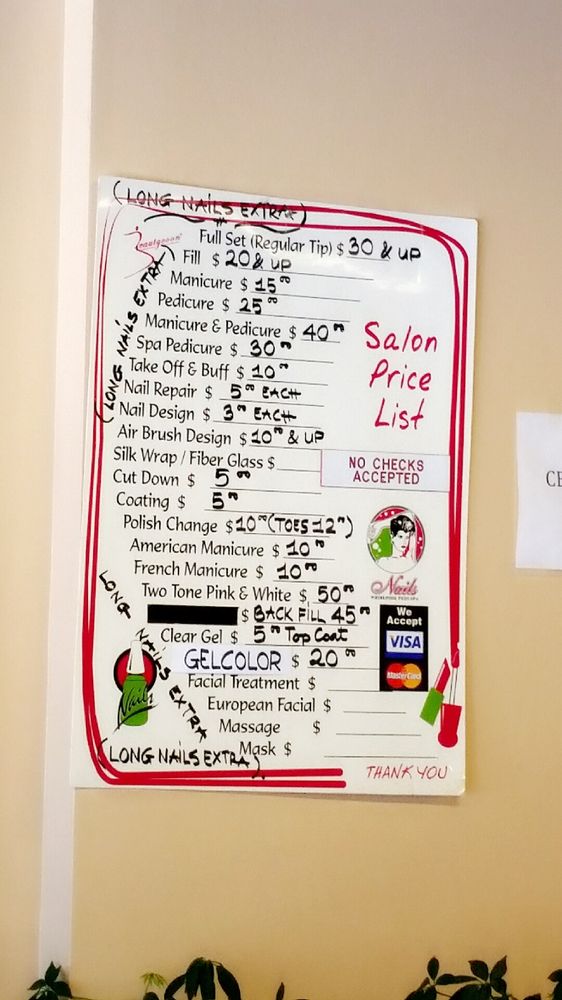 (LONG NAILS EXTRA)
Full Set (Regular Tip) $ 30 & UP
Fill $ 20 & UP
Manicure $ 15⁰⁰
Pedicure $ 25⁰⁰
Manicure & Pedicure $ 40⁰⁰
Spa Pedicure $ 30⁰⁰
Take Off & Buff $ 10⁰⁰
Nail Repair $ 5⁰⁰ EACH
Nail Design $ 3⁰⁰ EACH
Air Brush Design $ 10⁰⁰ & UP
Silk Wrap / Fiber Glass $
Cut Down $ 5⁰⁰
Coating $ 5⁰⁰
Polish Change $ 10⁰⁰ (TOES 12⁰⁰)
American Manicure $ 10⁰⁰
French Manicure $ 10⁰⁰
Two Tone Pink & White $ 50⁰⁰
$ BACK FILL 45⁰⁰
Clear Gel $ 5⁰⁰ Top Coat
GELCOLOR $ 20⁰⁰
Facial Treatment $
European Facial $
Massage $
Mask $
(LONG NAILS EXTRA)
(LONG NAILS EXTRA)
LONG NAILS EXTRA
Salon
Price
List
NO CHECKS
ACCEPTED
Nails
We
Accept
VISA
MasterCard
Nails
THANK YOU
CE